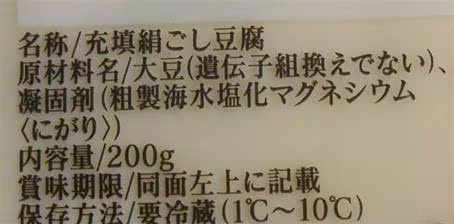 名称/充填絹ごし豆腐
原材料名/大豆(遺伝子組換えでない)、
凝固剤(粗製海水塩化マグネシウム
〈にがり〉)
内容量/200g
賞味期限/同面左上に記載
保存方法/要冷蔵(1℃〜10℃)